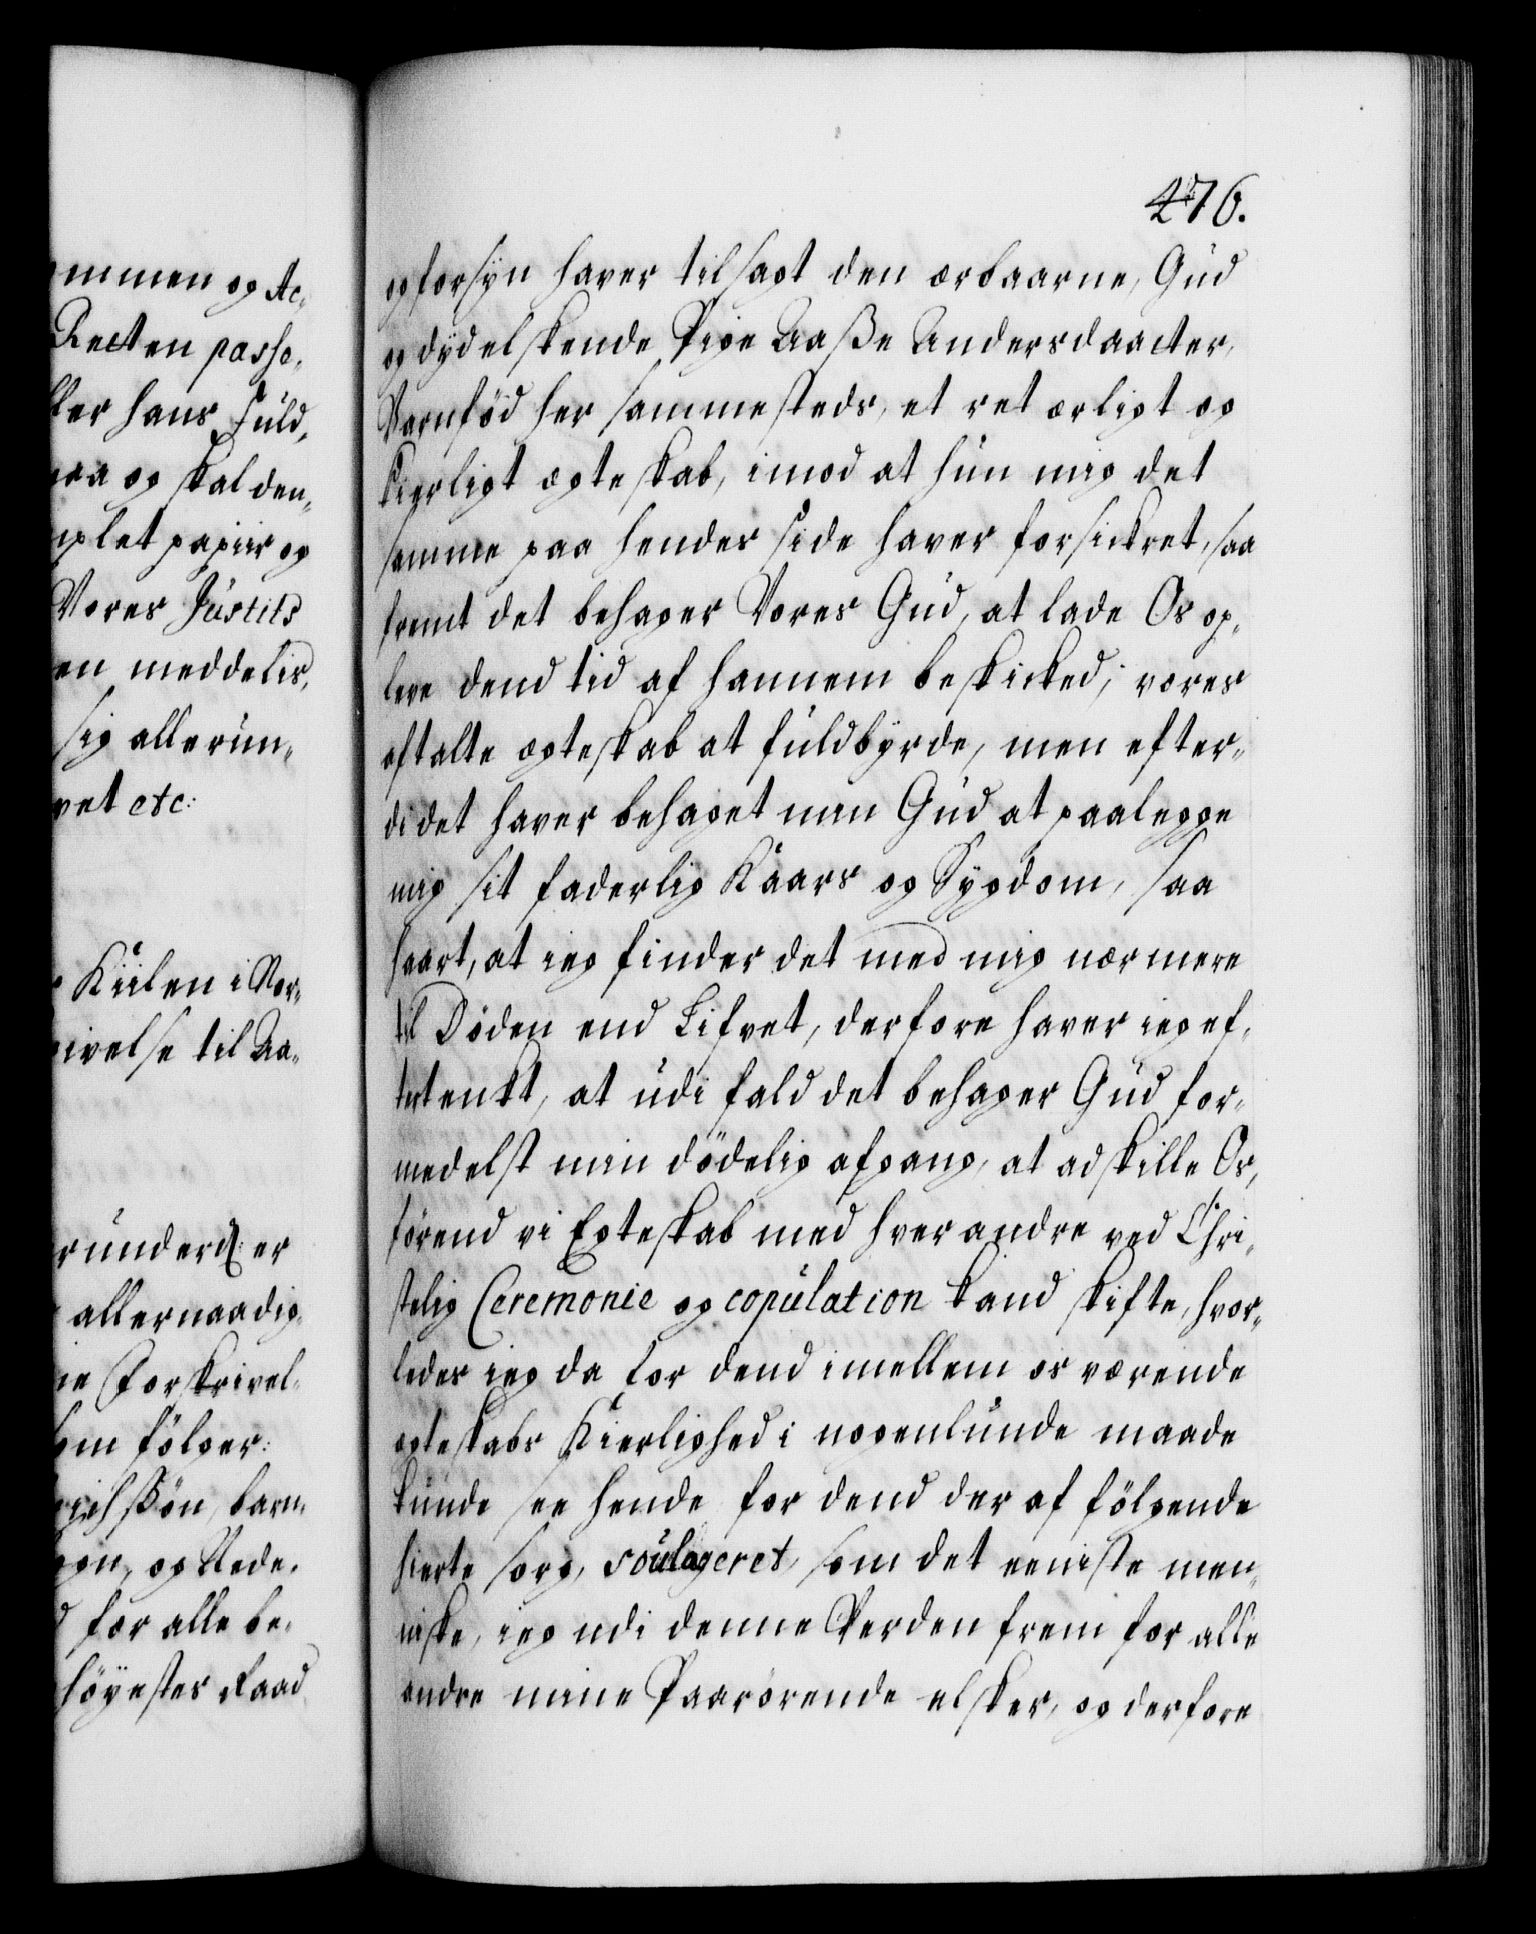 ommen og Ac-
Retten passe-
ller hans Fuld-
maa og skal den-
mplet papiir og
Vores Justits
en meddelis,
sig allerun-
vet etc:
Kiilen i Nor-
rivelse til Aa-
r underd: er
allernaadig-
ne Forskrivel-
som fölger:
richssön, barn-
og Rede-
d for alle be-
höyester Raad
476.
og forsyn haver tilsagt den ærbaarne, Gud
og dydelskende Pige Aaße Andersdaatter,
Barnfød her sammesteds, et ret ærligt og
Kierligt ægteskab, imod at hun mig det
samme paa hendes side haver forsickret, saa
fremt det behager Vores Gud, at lade Os op-
leve dend tid af hannem beskicked, vores
aftalte ægteskab at fuldbyrde, men efter-
di det haver behaget min Gud at paalegge
mig sit faderlig Kaars og Sygdom, saa
haart, at ieg finder det med mig nærmere
til Døden end Lifvet, derfore haver ieg ef-
tertenkt, at udi fald det behager Gud for-
medelst min dödelig afgang, at adskille Os,
förend vi Egteskab med hver andre ved Chri-
stelig Ceremonie og copulation kand skifte, hvor-
ledes ieg da for dend imellem os værende
egteskabs Kierlighed i nogenlunde maade
kunde see hende for dend der af fölgende
hierte sorg, soulageret, som det eeniste men-
niske, ieg udi denne Verden frem for alle
andre mine Paarörende elsker, og derfore